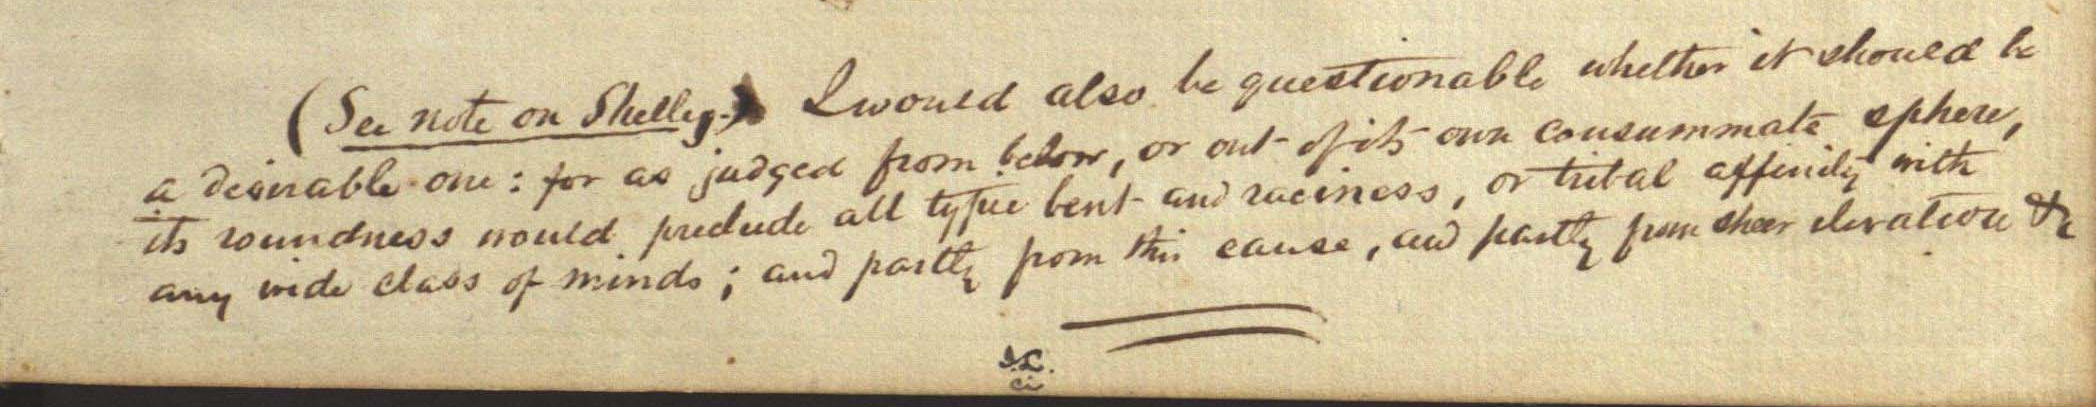 (See note on Shelley.) I would also be questionable whether it should be
a desirable one: for as judged from below, or out of its own consummate sphere,
its roundness would preclude all type bent and raciness, or tribal affinity with
any wide class of minds; and partly from this cause, and partly from sheer elevation &c